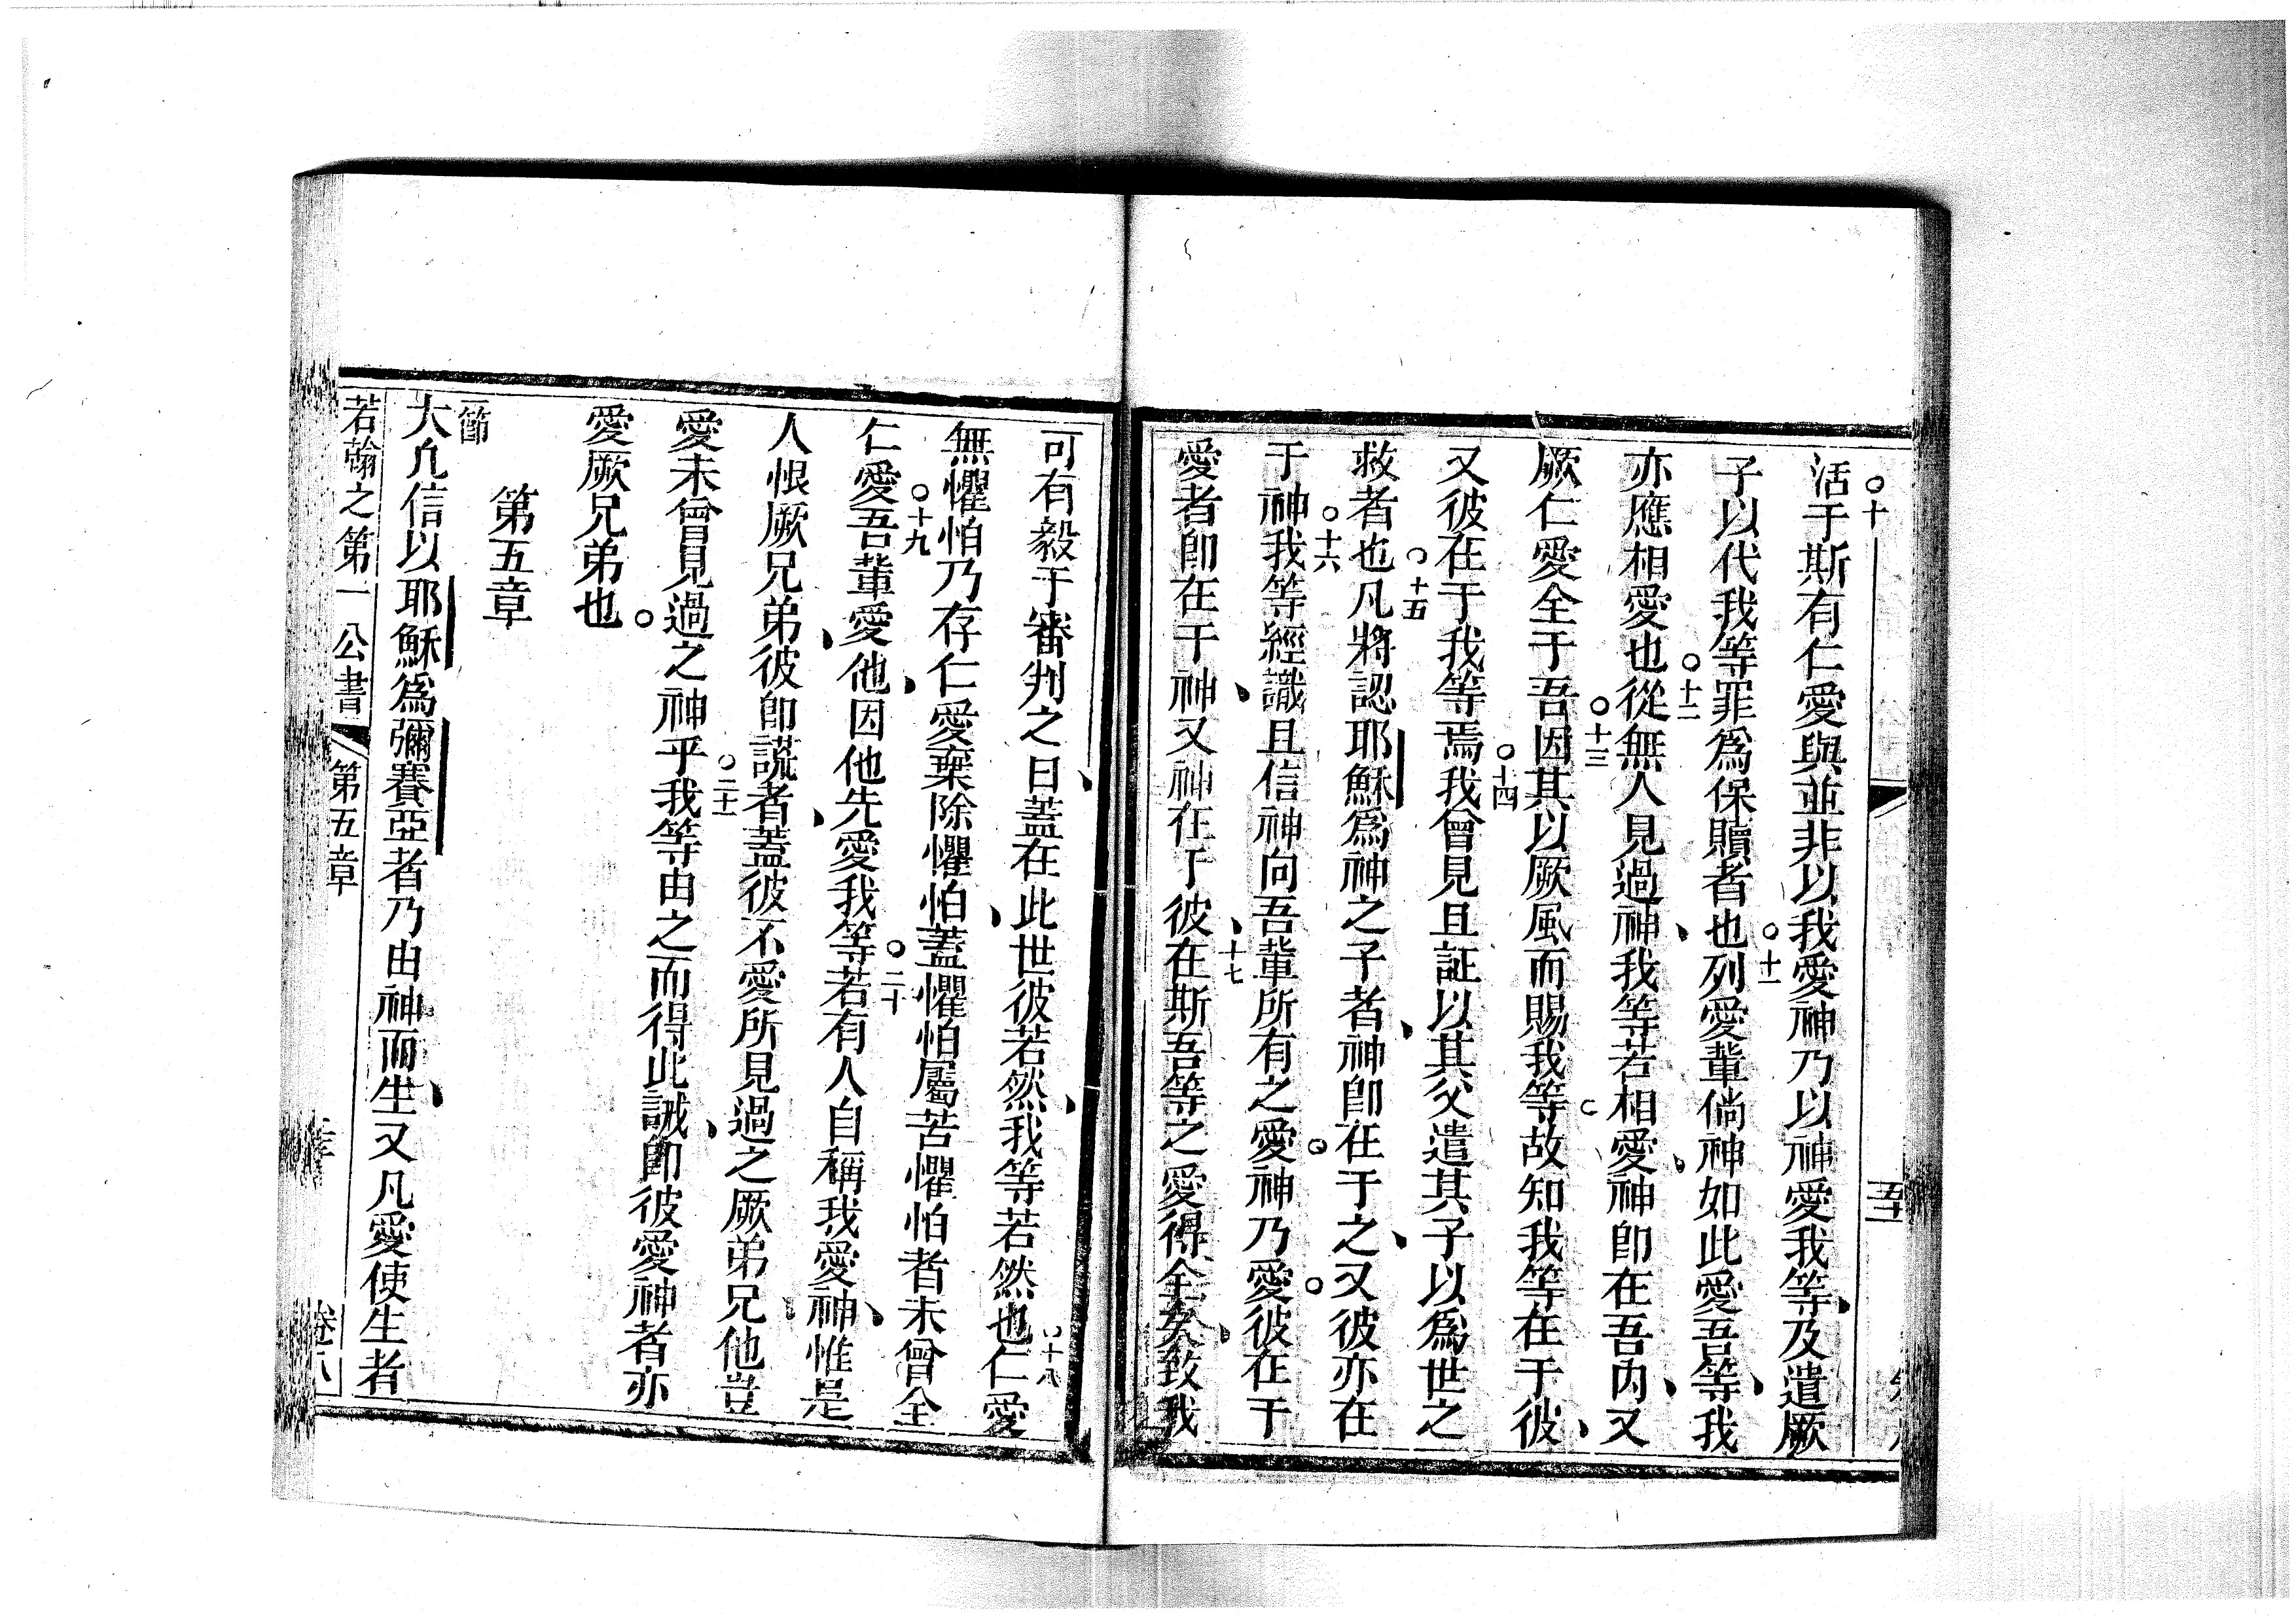 ○十
活于斯有仁愛與並非以我愛神乃以神愛我等、及遣厥
子以代我等罪爲保贖者也○十一列愛輩倘神如此愛吾等、我
亦應相愛也○十二從無人見過神、我等若相愛、神卽在吾內、又
厥仁愛全于吾○十三因其以厥風而賜我等故知我等在于彼、
又彼在于我等焉○十四我曾見且証以其父遣其子以爲世之
救者也○十五凡將認耶穌爲神之子者、神卽在于之、又彼亦在
于神○十六我等經識且信神向吾輩所有之愛。神乃愛。彼在于
愛者卽在于神、又神在于彼、十七在斯吾等之愛得全矣、致我
可有毅于審判之日、蓋在此世彼若然、我等若然也○十八仁愛
無懼怕乃存仁愛棄除懼怕、蓋懼怕屬苦懼怕者未曾全
仁愛○十九吾輩愛他、因他先愛我等○二十若有人自稱我愛神、惟是
人恨厥兄弟、彼卽謊者、蓋彼不愛所見過之厥弟兄、他豈
愛未曾見過之神乎○二十一我等由之而得此誡、卽彼愛神者亦
愛厥兄弟也。
第五章
一節
大凡信以耶穌爲彌賽亞者乃由神而生、又凡愛使生者
若翰之第一公書 第五章 卷八